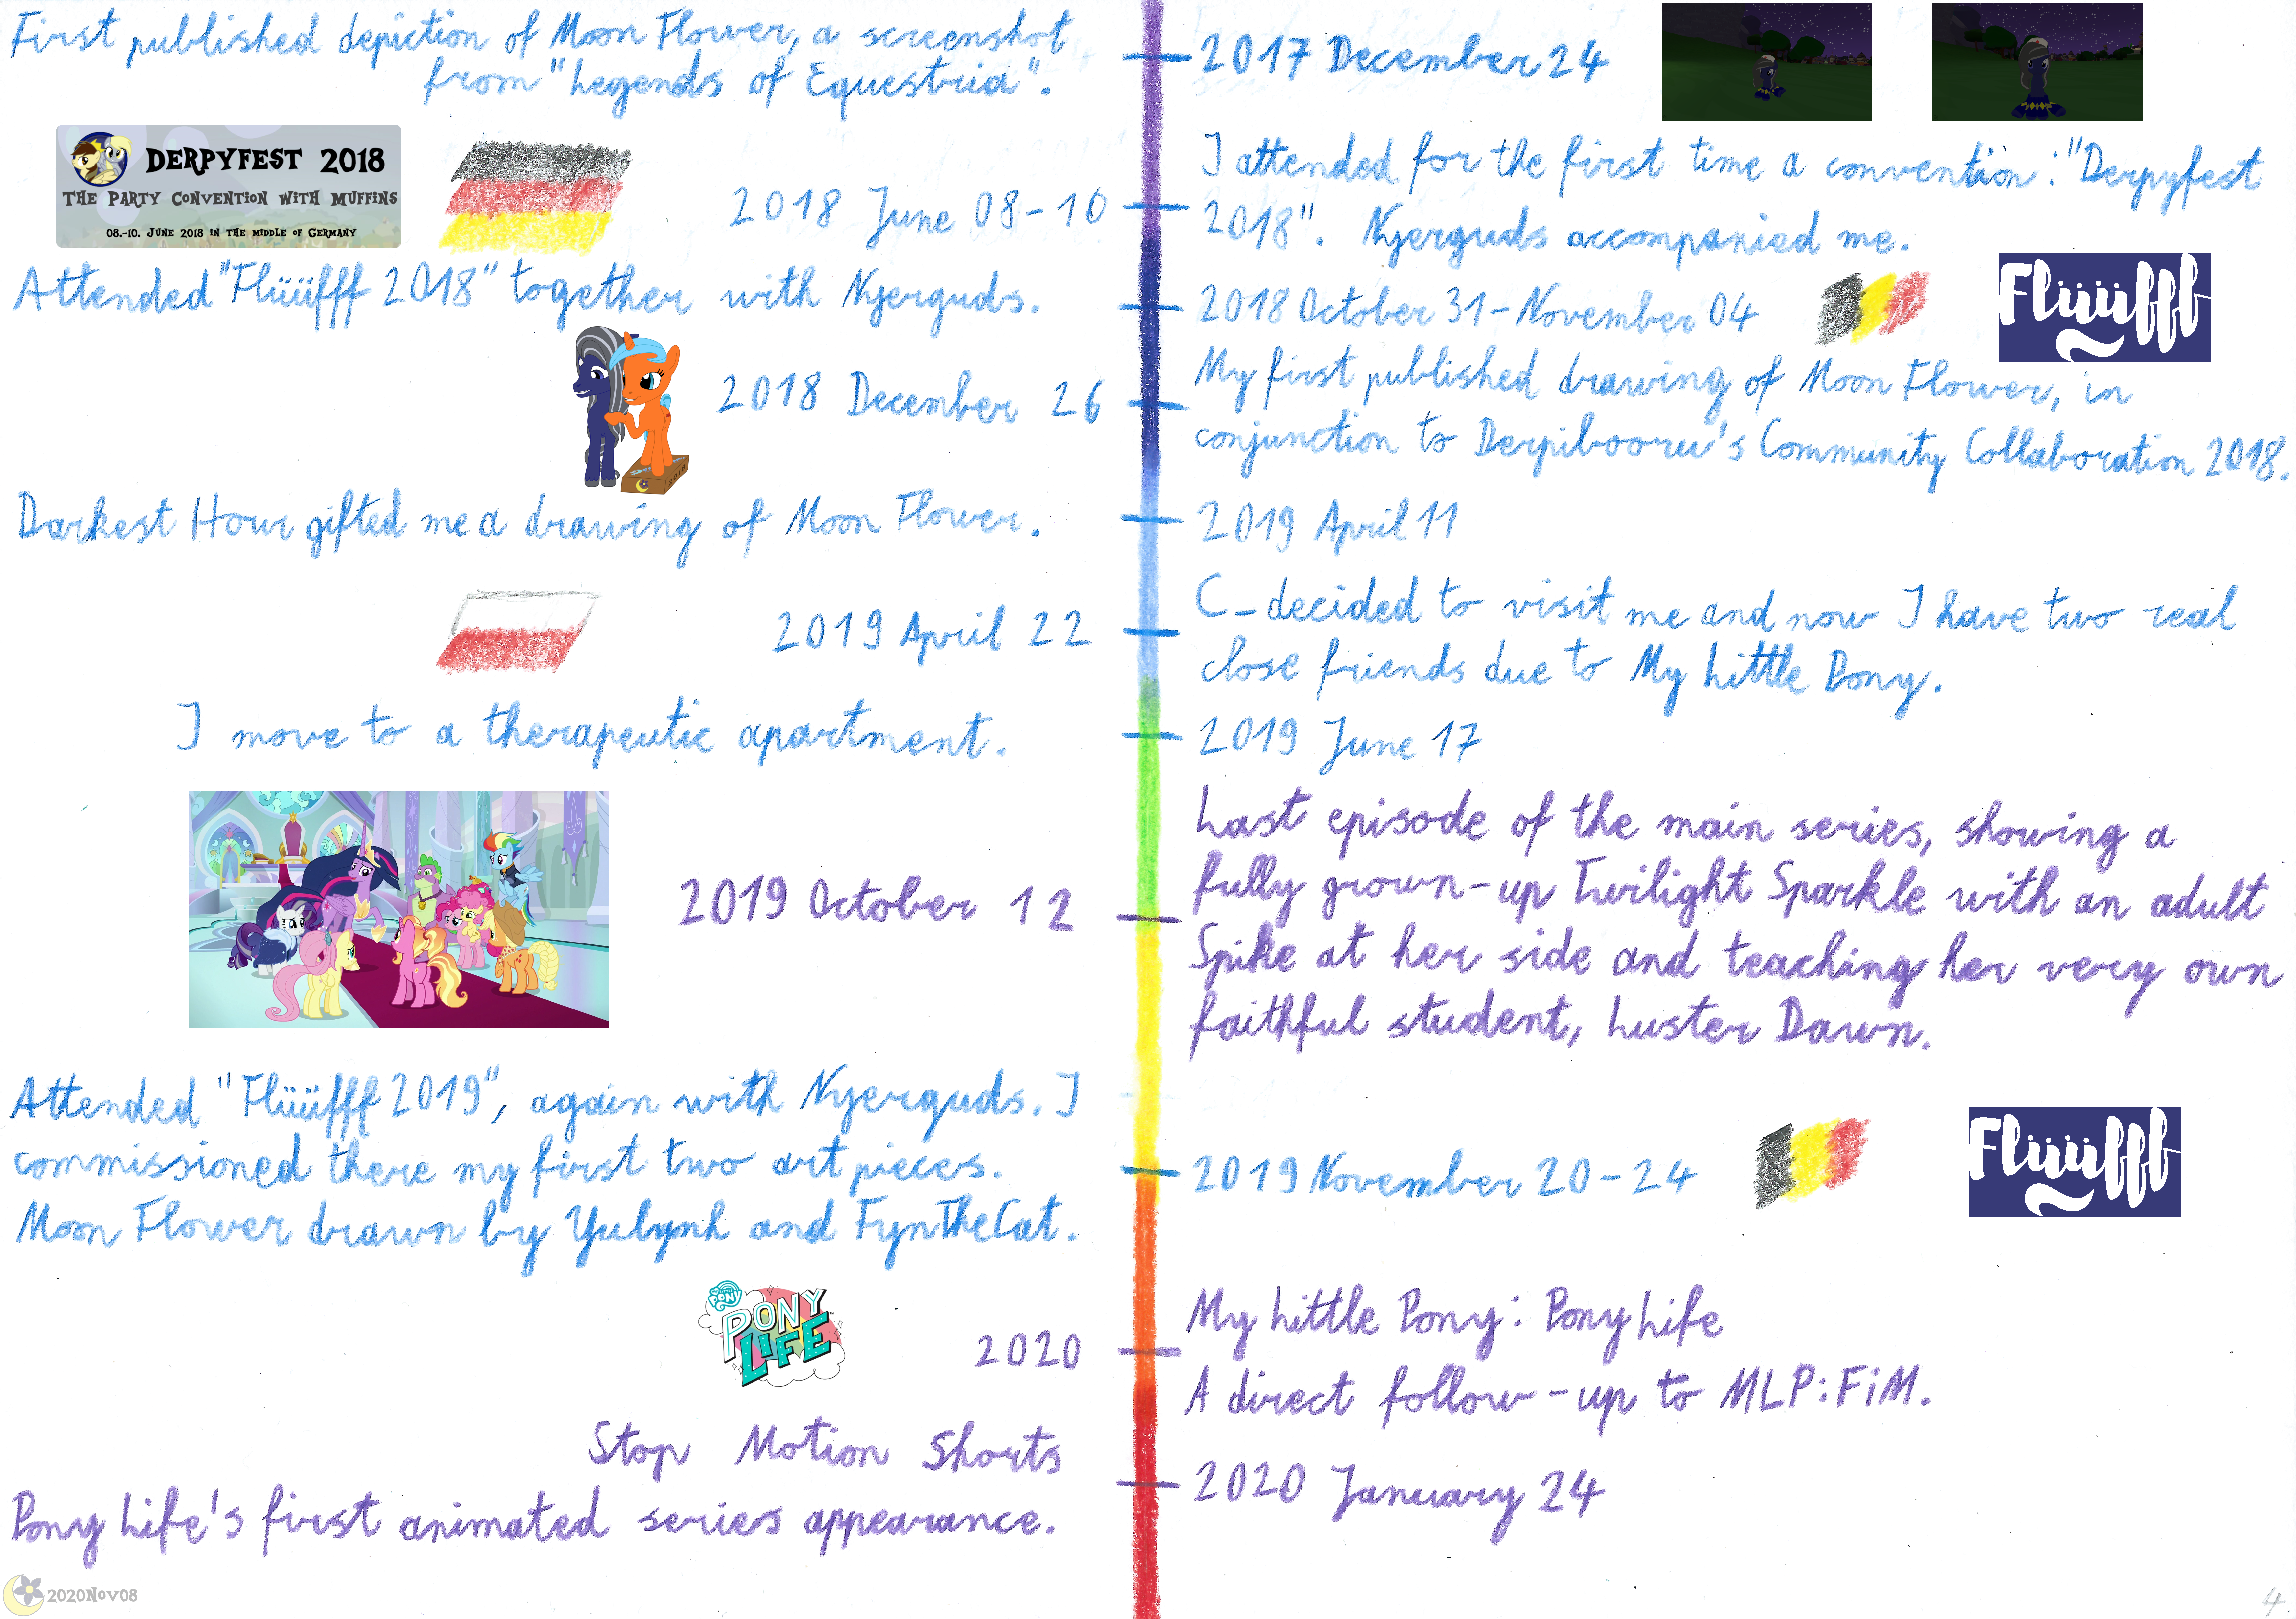 First published depiction of Moon Flower, a screenshot
from "Legends of Equestria".
2017 December 24
DERPYFEST 2018
THE PARTY CONVENTION WITH MUFFINS
08.-10. JUNE 2018 IN THE MIDDLE OF GERMANY
2018 June 08-10
I attended for the first time a convention: "Derpyfest
2018". Nyerguds accompanied me.
Attended "Flüüfff 2018" together with Nyerguds.
2018 October 31-November 04
Flüüfff
2018
2018 December 26
My first published drawing of Moon Flower, in
conjunction to Derpibooru's Community Collaboration 2018.
Darkest Hour gifted me a drawing of Moon Flower.
2019 April 11
2019 April 22
C_decided to visit me and now I have two real
close friends due to My Little Pony.
I move to a therapeutic apartment.
2019 June 17
2019 October 12
Last episode of the main series, showing a
fully grown-up Twilight Sparkle with an adult
Spike at her side and teaching her very own
faithful student, Luster Dawn.
Attended "Flüüfff 2019", again with Nyerguds. I
commissioned there my first two art pieces.
Moon Flower drawn by Yulynh and FynTheCat.
2019 November 20-24
Flüüfff
PONY
PONY
LIFE
2020
My Little Pony: Pony Life
A direct follow-up to MLP:FiM.
Stop Motion Shorts
Pony Life's first animated series appearance.
2020 January 24
2020Nov08
4